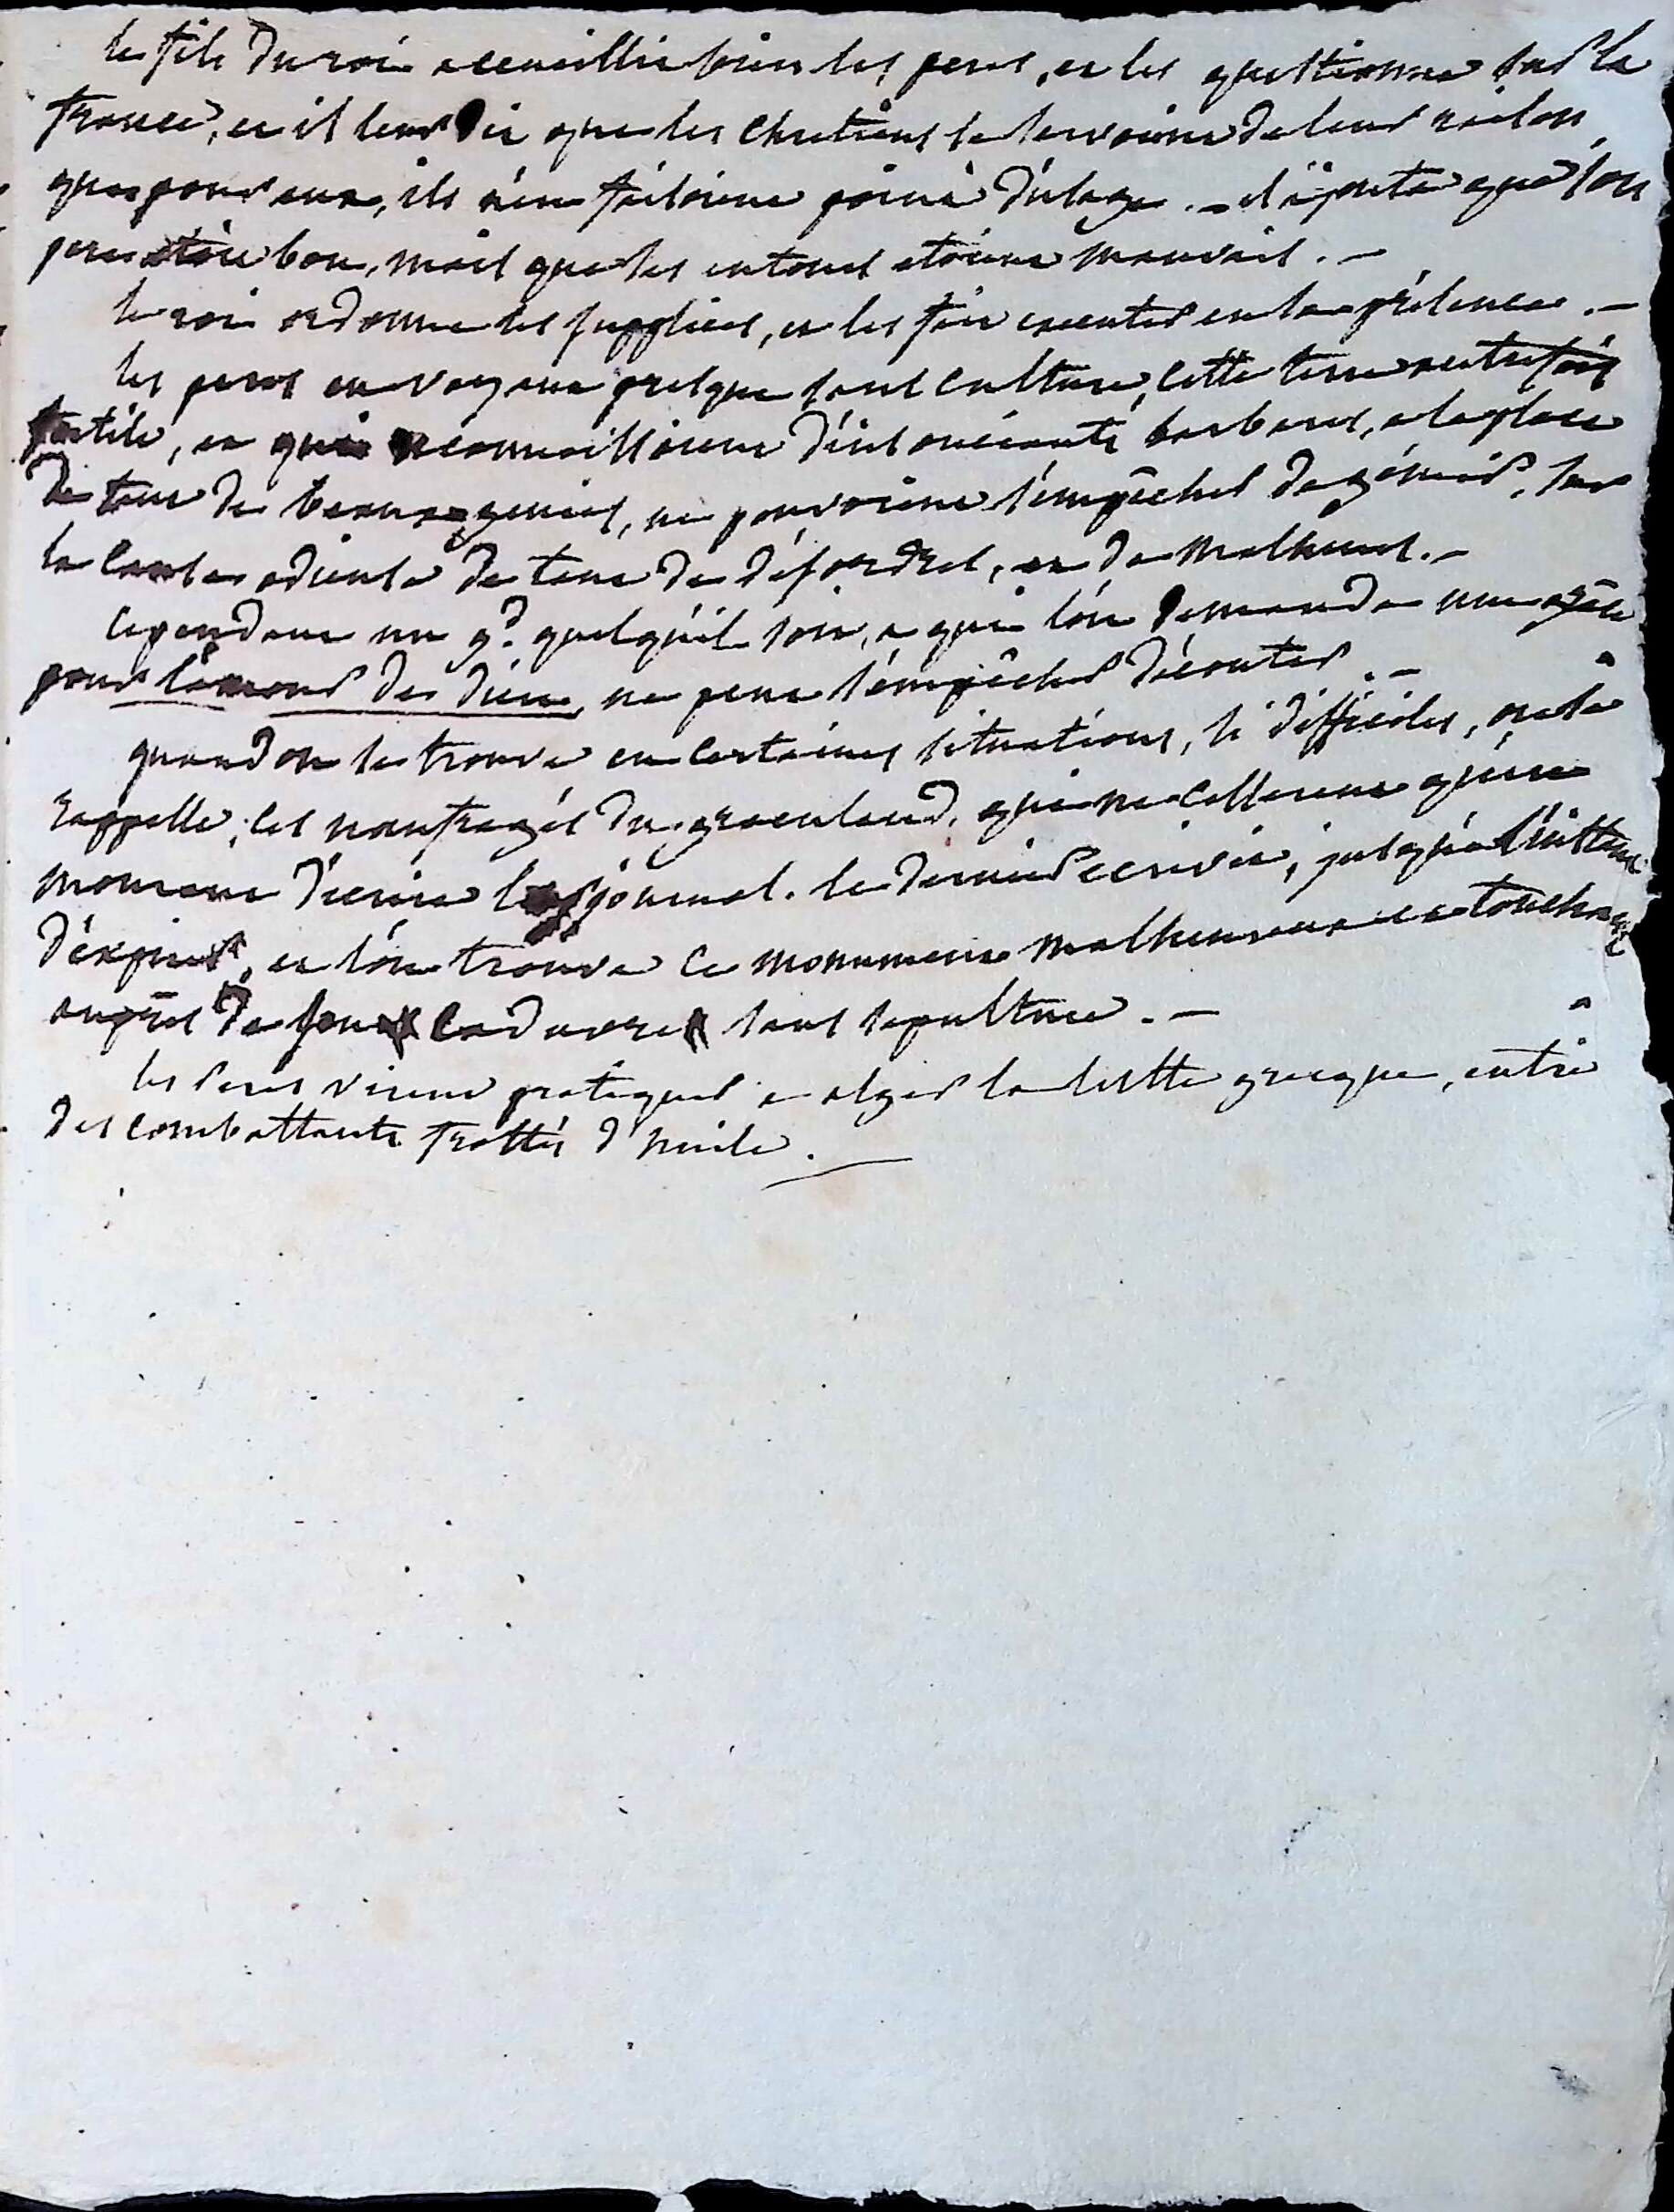 le fils du roi accueillit bien les peres, et les questionna sur la
france, et il leur dit que les chretiens se servoient de leur raison,
que pour eux, ils n'en faisoient point d'usage. – il ajouta que son
pere étoit bon, mais que ses entours etoient mauvais. –
le roi ordonne les supplices, et les fait executer en sa présence. –
les peres en voyant presque sans culture, cette terre autrefois
fertile, et qui reconnaissoient d'insouciants barbares, a la place
de tant de beaux genies, ne pouvoient s'empêcher de gémir, sur
la cause odieuse de tant de désordres, et de malheurs. –
cependant un gd. quelqu'il soit, a qui l'on demande une grâce
pour l'amour de dieu, ne peut s'empêcher d'écouter. –
quand on se trouve en certaines situations, si difficiles, on se
rappelle, ces naufragés du groenland, qui ne cesserent qu'en
mourant d'écrire journal. le dernier ecrivit, jusqu'a l'instant
d'expirer, et l'on trouva ce monument malheureux et touchant
auprès de son cadavre sans sepulture. –
les peres virent pratiquer a alger la lutte grecque, entre
des combattants frottés d'huile.